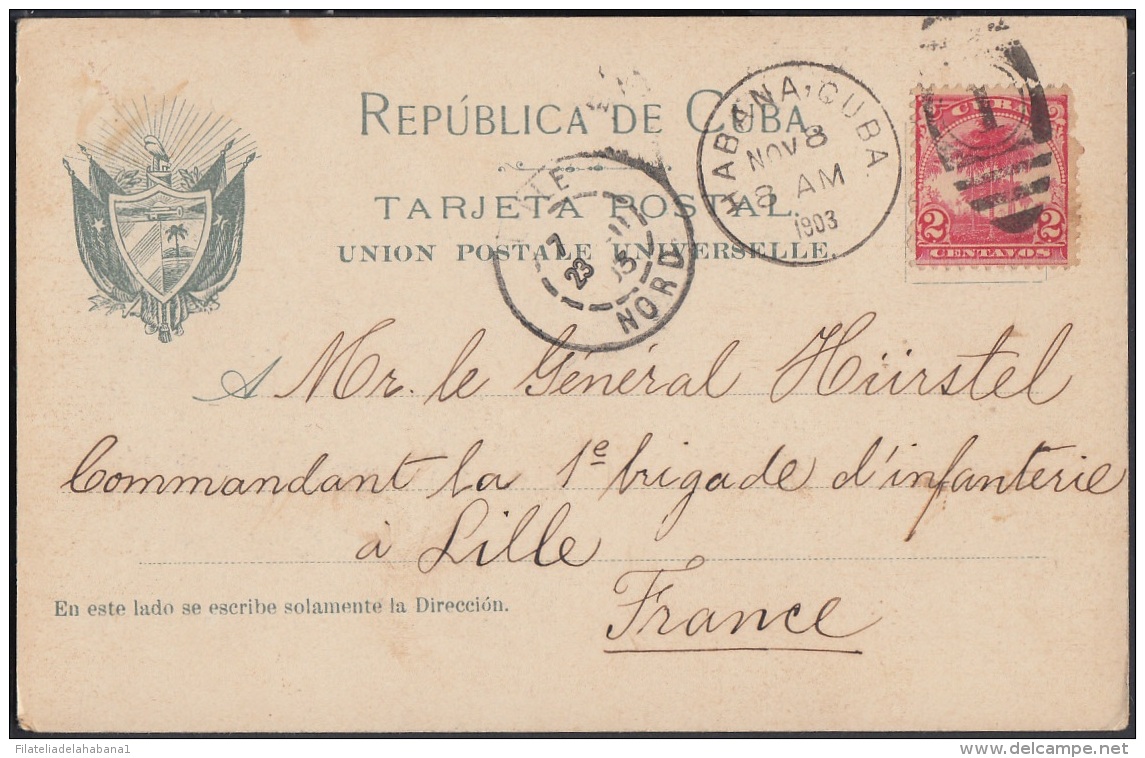 REPÚBLICA DE CUBA
TARJETA POSTAL.
UNION POSTALE UNIVERSELLE.
HABANA, CUBA.
NOV 8
8 AM
1903
CUBA
1
2 2
CENTAVOS
7
23
NORD
A Mr. le Général Hürstel
Commandant la 1e brigade d'infanterie
à Lille
France
En este lado se escribe solamente la Dirección.
Filateliadelahabana1
delcampe.net